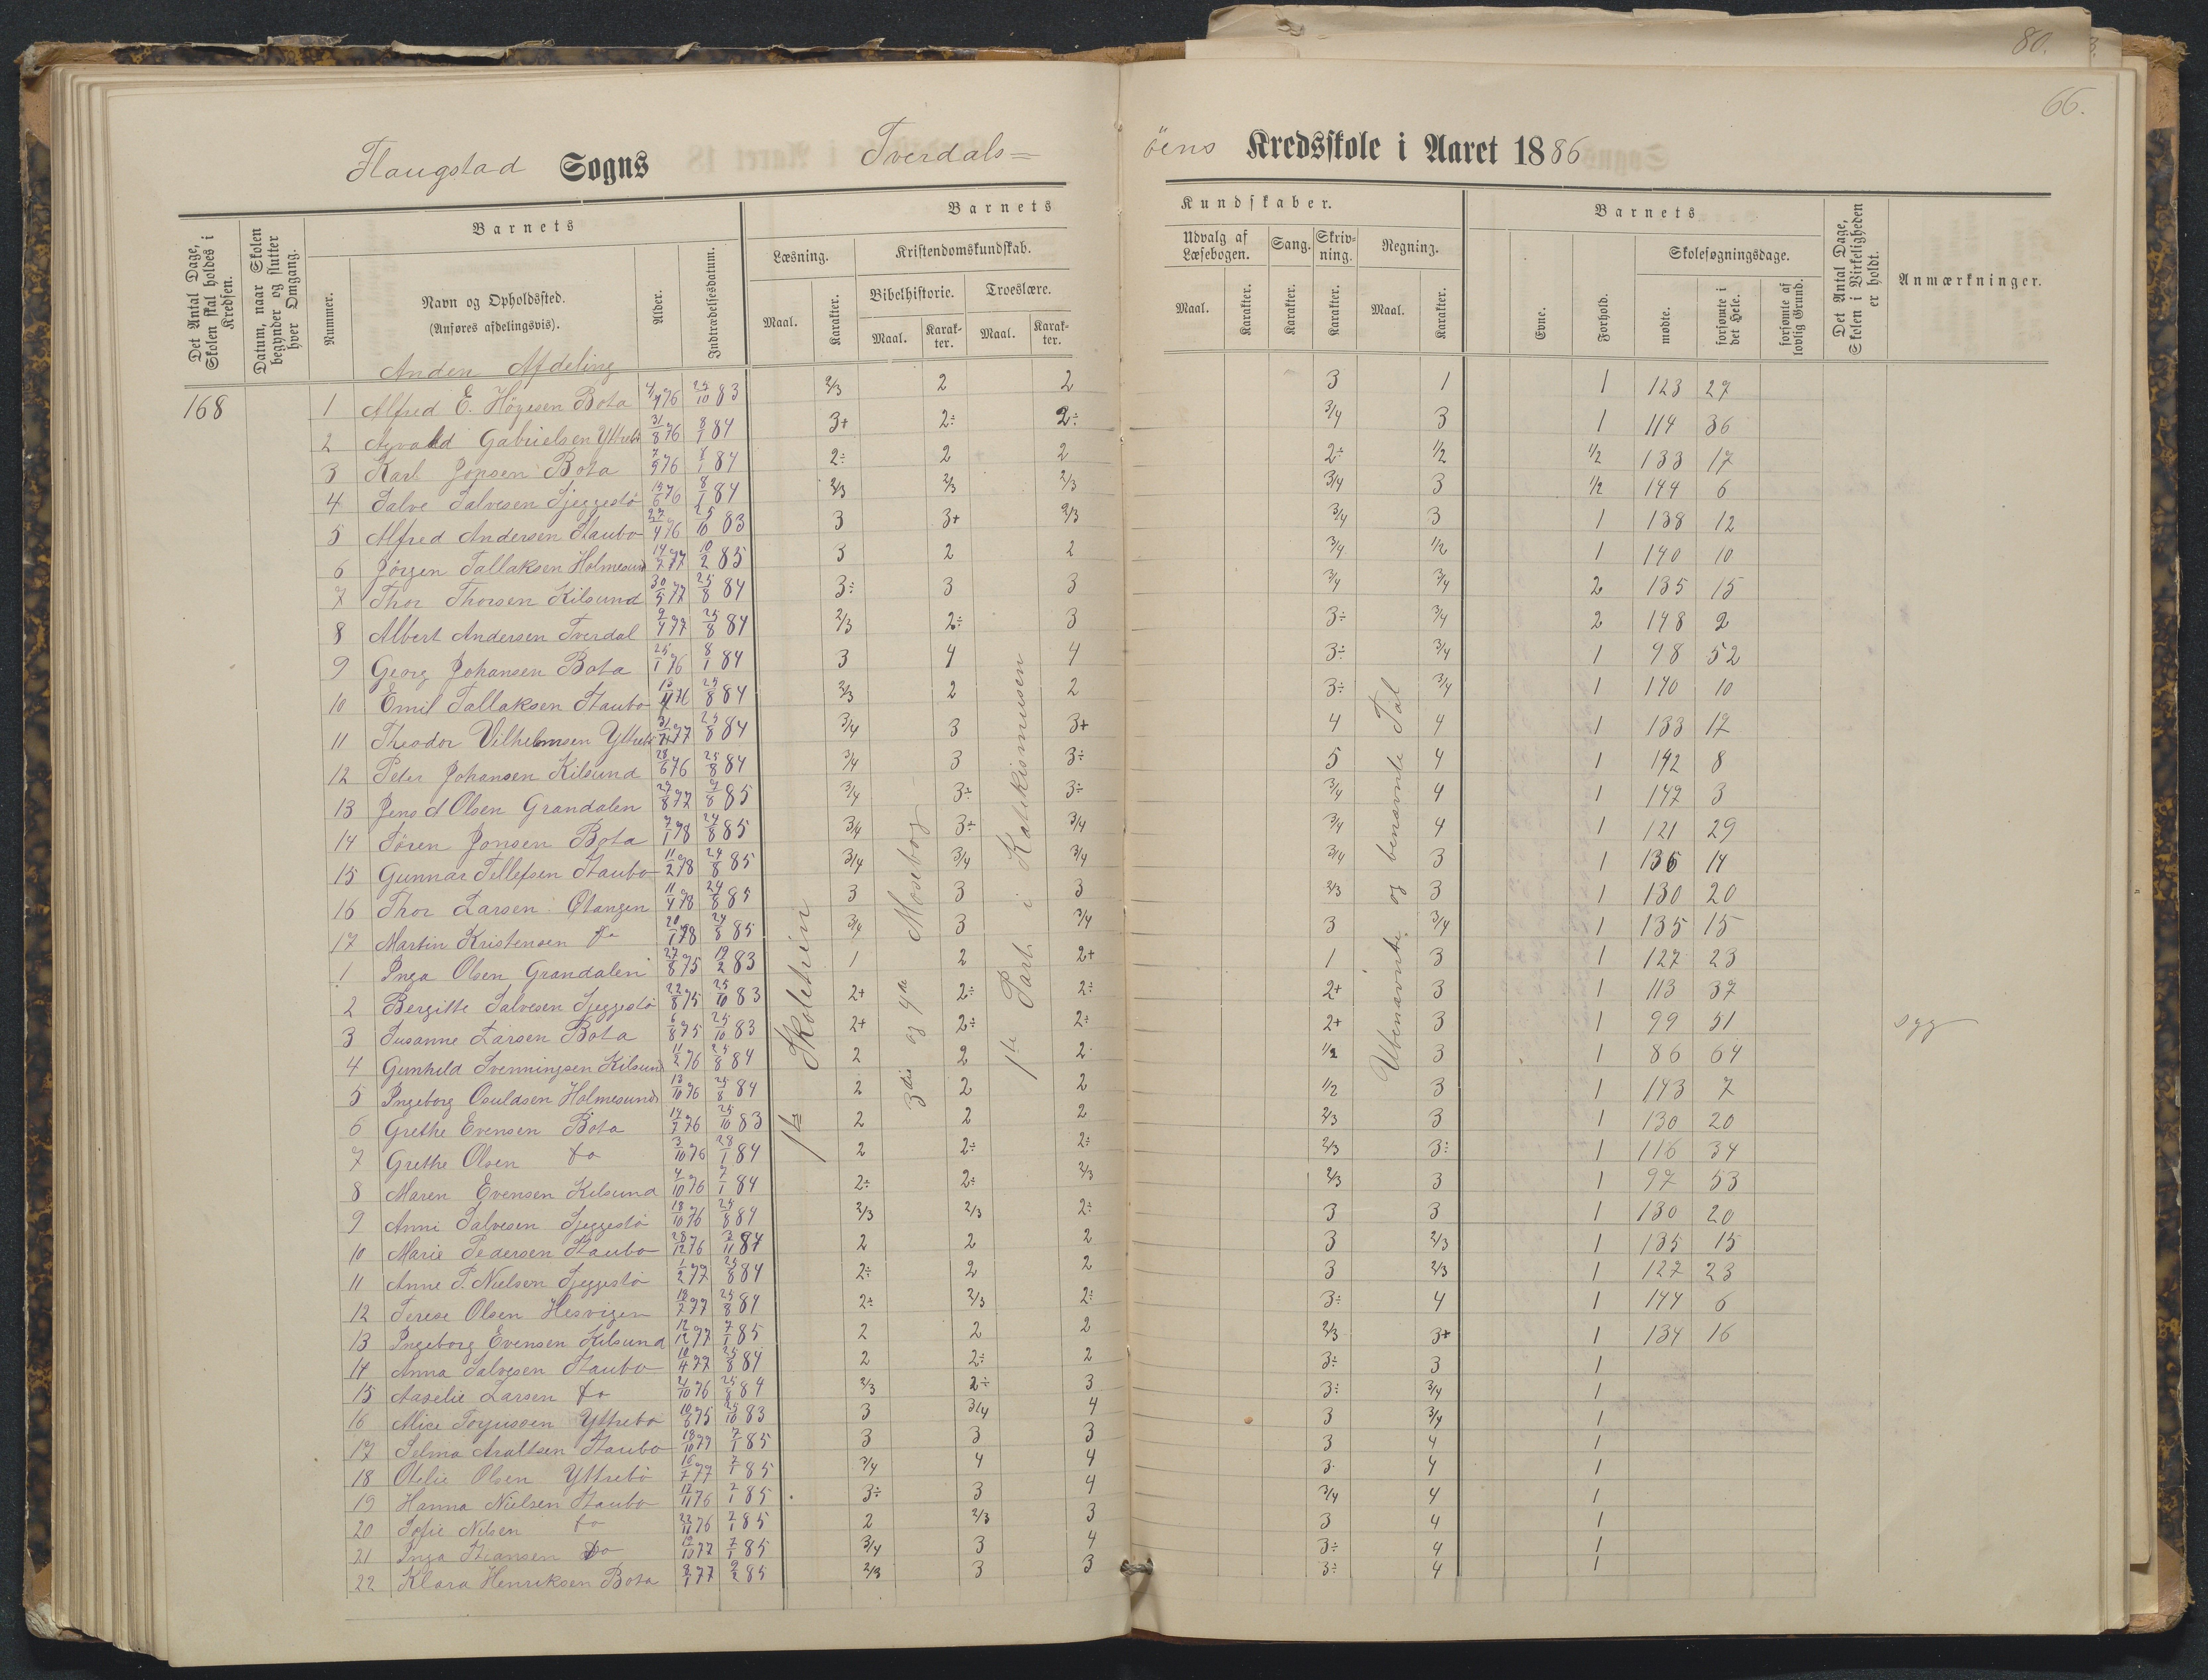 80.
66.
Flaugstad Sogns Tverdals=
öens Kredsskole i Aaret 1886
Det Antal Dage, Skolen skal holdes i Kredsen.
Datum, naar Skolen begynder og slutter hver Omgang.
Barnets
Nummer.
Navn og Opholdssted.
(Anføres afdelingsvis).
Alder.
Indtrædelsesdatum.
Barnets
Læsning.
Maal.
Karakter.
Kristendomskundskab.
Bibelhistorie.
Maal.
Karak-
ter.
Troeslære.
Maal.
Karak-
ter.
Kundskaber.
Udvalg af
Læsebogen.
Maal.
Karakter.
Sang.
Karakter.
Skriv-
ning.
Karakter.
Regning.
Maal.
Karakter.
Barnets
Evne.
Forhold.
Skolesøgningsdage.
mødte.
forsømte i det Hele.
forsømte af lovlig Grund.
Det Antal Dage, Skolen i Virkeligheden er holdt.
Anmærkninger.
Anden Afdeling
168
1 Alfred E. Högesen Bota 4/7 76 25/10 83 2/3 2 2 3 1 1 123 27
2 Agvald Gabrielsen Yttrebö 31/8 76 8/1 84 3+ 2÷ 2÷ 3/4 3 1 114 36
3 Karl Jonsen Bota 7/9 76 8/1 84 2÷ 2 2 2÷ 1/2 1/2 133 17
4 Salve Salvesen Sjeggestö 13/6 76 8/1 84 2/3 2/3 2/3 3/4 3 1/2 144 6
5 Alfred Andersen Staubo 27/4 76 25/10 83 3 3+ 2/3 3/4 3 1 138 12
6 Jörgen Tallaksen Holmesund 14/7 77 10/2 85 3 2 2 3/4 1/2 1 140 10
7 Thor Thorsen Kilsund 30/5 77 25/8 84 3÷ 3 3 3/4 3/4 2 135 15
8 Albert Andersen Tverdal 9/4 77 25/8 84 2/3 2÷ 3 3÷ 3/4 2 148 2
9 Georg Johansen Bota 25/1 76 8/1 84 3 4 4 3÷ 3/4 1 98 52
10 Emil Tallaksen Staubo 13/11 76 25/8 84 2/3 2 2 3÷ 3/4 1 140 10
11 Theodor Vilhelmsen Yttrebö 77 25/8 84 3/4 3 3+ 4 4 1 133 17
12 Peter Johansen Kilsund 28/6 76 25/8 84 3/4 3 3÷ 5 4 1 142 8
13 Jens d Olsen Grandalen 29/8 77 7/8 85 3/4 3÷ 3÷ 3/4 4 1 147 3
14 Sören Jonsen Bota 7/1 78 24/8 85 3/4 3÷ 3/4 3/4 4 1 121 29
15 Gunnar Tellefsen Staubo 11/2 78 24/8 85 3/4 3/4 3/4 3/4 3 1 136 14
16 Thor Larsen Ötangen 11/4 78 24/8 85 3 3 3 2/3 3 1 130 20
17 Martin Kristensen do 20/1 78 24/8 85 3/4 3 3/4 3 3/4 1 135 15
1 Inga Olsen Grandalen 27/8 75 19/2 83 1 2 2+ 1 3 1 127 23
2 Bergitte Salvesen Sjeggestö 22/8 75 25/10 83 2+ 2÷ 2÷ 2+ 3 1 113 37
3 Susanne Larsen Bota 6/8 75 25/10 83 2+ 2÷ 2÷ 2+ 3 1 99 51 syg
4 Gunhild Svenningsen Kilsund 11/2 76 25/8 84 2 2 2 1/2 3 1 86 64
5 Ingeborg Osuldsen Holmesund 13/10 76 25/8 84 2 2 2 1/2 3 1 143 7
6 Grethe Evensen Bota 14/7 76 25/10 83 2 2 2 2/3 3 1 130 20
7 Grethe Olsen do 3/10 76 28/1 84 2 2÷ 2÷ 2/3 3÷ 1 116 34
8 Maren Evensen Kilsund 4/10 76 7/1 84 2÷ 2÷ 2/3 2/3 3 1 97 53
9 Anne Salvesen Sjeggestö 18/10 76 25/8 84 2/3 2/3 2÷ 3 3 1 130 20
10 Marie Pedersen Staubo 28/12 76 3/11 84 2 2 2 3 2/3 1 135 15
11 Anne T. Nielsen Sjeggestö 1/2 77 25/8 84 2÷ 2 2 3 2/3 1 127 23
12 Terese Olsen Hesvigen 18/2 77 25/8 84 2÷ 2/3 2÷ 3÷ 4 1 144 6
13 Ingeborg Evensen Kilsund 12/12 77 7/1 85 2 2 2 2/3 3+ 1 134 16
14 Anna Salvesen Staubo 10/4 77 25/8 84 2 2÷ 2 3÷ 3 1
15 Aaselie Larsen do 2/10 76 25/8 84 2/3 2÷ 3 3÷ 3/4 1
16 Alice Torjussen Yttrebö 10/6 75 25/10 83 3 3/4 4 3 3/4 1
17 Selma Araltsen Staubo 18/10 77 7/1 85 3 3 3 3 4 1
18 Otelie Olsen Yttrebö 16/7 77 7/1 85 3/4 4 4 3 4 1
19 Hanna Nielsen Staubo 12/11 76 7/1 85 3÷ 3 4 3/4 4 1
20 Sofie Nilsen do 23/11 76 7/1 85 2 2/3 3 3 4 1
21 Inga Hansen do 19/10 77 7/1 85 3/4 3 4 3÷ 4 1
22 Klara Henriksen Bota 9/1 77 9/2 85 2/3 3 3 3÷ 4 1
1ste Skoletrin
3die og 4de Mosebog
1ste Part i Katekismusen
Ubenævnte og benævnte Tal